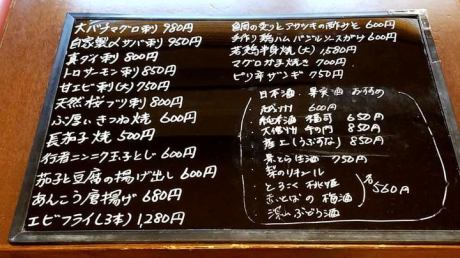 大バチマグロ刺り 980円
自家製〆サバ刺り 950円
真ダイ刺り 800円
トロサーモン刺り 850円
甘エビ刺り(大) 750円
天然桜ブリ刺り 800円
ぶ厚いきつね焼 600円
長茄子焼 500円
行者ニンニク玉子とじ 600円
茄子と豆腐の揚げ出し 600円
あんこう唐揚げ 680円
エビフライ(3本) 1,280円
600円
手作り鶏ハムバジルソースがけ 600円
若鶏半身焼(大) 1,580円
マグロカマ焼き 700円
ピリ辛ザンギ 750円
日本酒、果実酒 おすすめ
600円
650円
850円
850円
750円
・梨のリキュール
・とろこく桃姫
梅酒
ぶどう酒
各560円